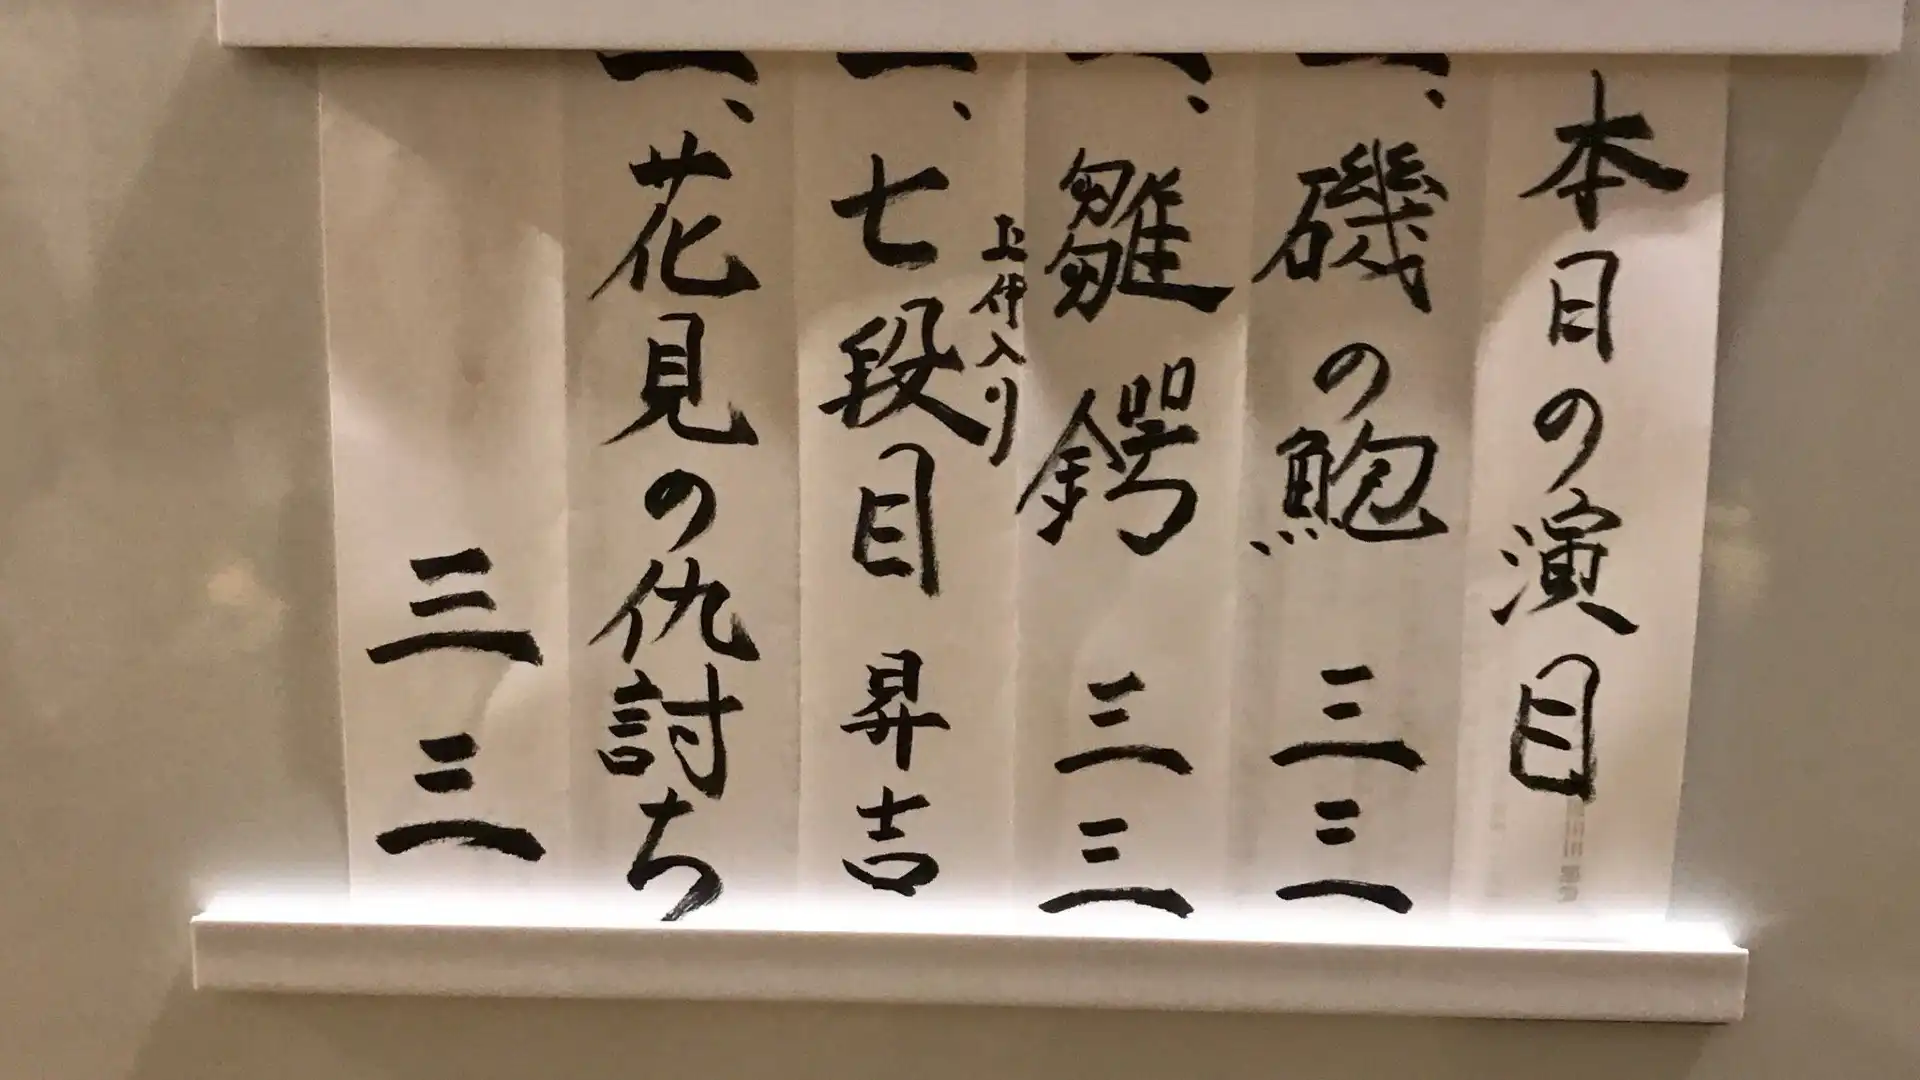 本日の演目
一、磯の鮑 三三
一、雛鍔 三三
一、七段目 昇吉
仲入り
一、花見の仇討ち
三三